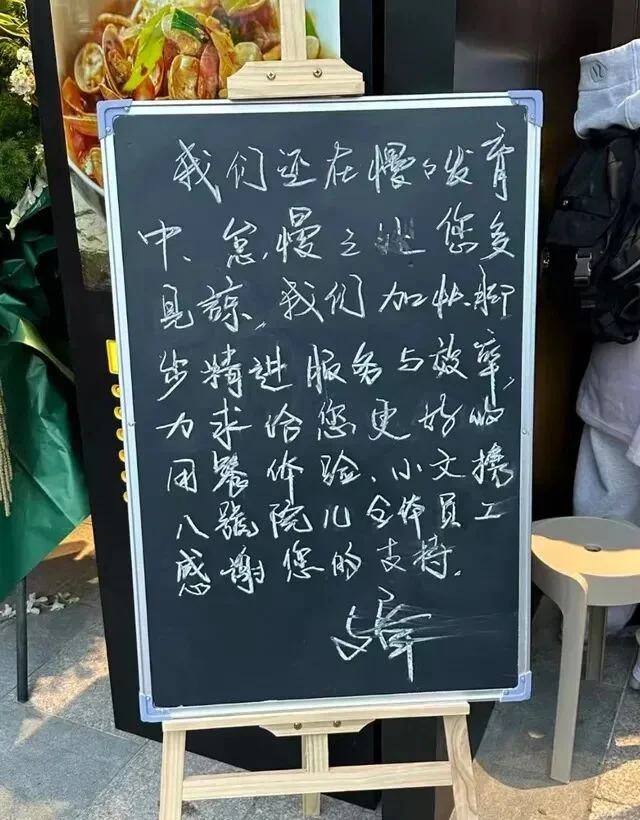 我们还在慢々发育
中、怠慢之处您多
見諒，我们加快脚
步精进服务与效率，
力求给您更好的
用餐体验、小文携
八號院儿全体员工
感谢您的支持.